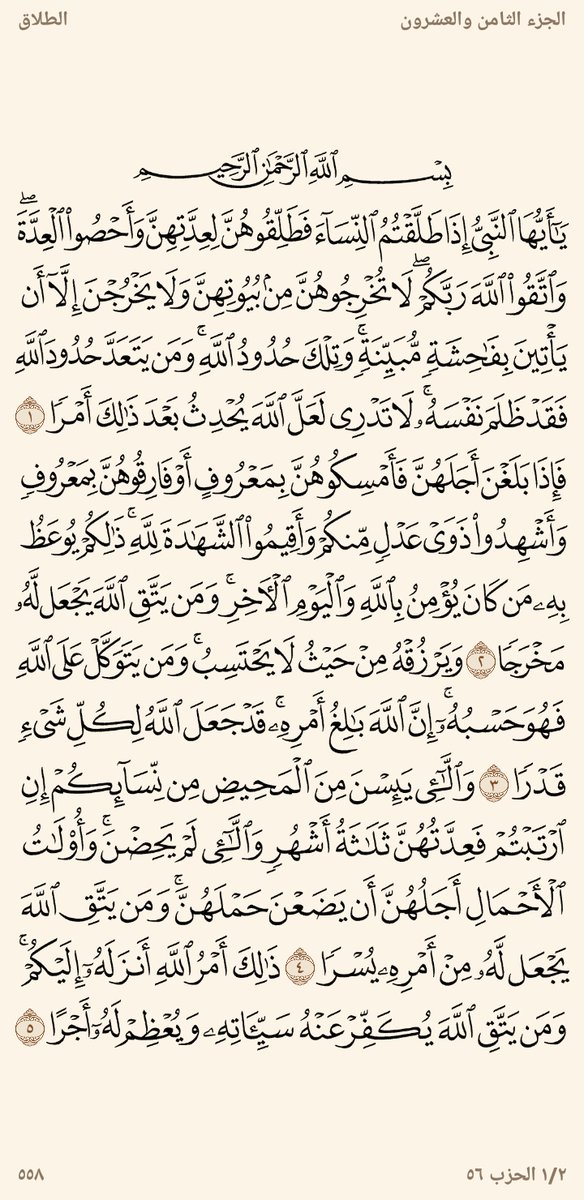 الجزء الثامن والعشرون
الطلاق
بِسْمِ ٱللَّهِ ٱلرَّحْمَٰنِ ٱلرَّحِيمِ
يَٰٓأَيُّهَا ٱلنَّبِىُّ إِذَا طَلَّقْتُمُ ٱلنِّسَآءَ فَطَلِّقُوهُنَّ لِعِدَّتِهِنَّ وَأَحْصُوا۟ ٱلْعِدَّةَ ۖ
وَٱتَّقُوا۟ ٱللَّهَ رَبَّكُمْ ۖ لَا تُخْرِجُوهُنَّ مِنۢ بُيُوتِهِنَّ وَلَا يَخْرُجْنَ إِلَّآ أَن
يَأْتِينَ بِفَٰحِشَةٍ مُّبَيِّنَةٍ ۚ وَتِلْكَ حُدُودُ ٱللَّهِ ۚ وَمَن يَتَعَدَّ حُدُودَ ٱللَّهِ
فَقَدْ ظَلَمَ نَفْسَهُۥ ۚ لَا تَدْرِى لَعَلَّ ٱللَّهَ يُحْدِثُ بَعْدَ ذَٰلِكَ أَمْرًا ١
فَإِذَا بَلَغْنَ أَجَلَهُنَّ فَأَمْسِكُوهُنَّ بِمَعْرُوفٍ أَوْ فَارِقُوهُنَّ بِمَعْرُوفٍ
وَأَشْهِدُوا۟ ذَوَىْ عَدْلٍ مِّنكُمْ وَأَقِيمُوا۟ ٱلشَّهَٰدَةَ لِلَّهِ ۚ ذَٰلِكُمْ يُوعَظُ
بِهِۦ مَن كَانَ يُؤْمِنُ بِٱللَّهِ وَٱلْيَوْمِ ٱلْءَاخِرِ ۚ وَمَن يَتَّقِ ٱللَّهَ يَجْعَل لَّهُۥ
مَخْرَجًا ٢ وَيَرْزُقْهُ مِنْ حَيْثُ لَا يَحْتَسِبُ ۚ وَمَن يَتَوَكَّلْ عَلَى ٱللَّهِ
فَهُوَ حَسْبُهُۥٓ ۚ إِنَّ ٱللَّهَ بَٰلِغُ أَمْرِهِۦ ۚ قَدْ جَعَلَ ٱللَّهُ لِكُلِّ شَىْءٍ
قَدْرًا ٣ وَٱلَّٰٓـِٔى يَئِسْنَ مِنَ ٱلْمَحِيضِ مِن نِّسَآئِكُمْ إِنِ
ٱرْتَبْتُمْ فَعِدَّتُهُنَّ ثَلَٰثَةُ أَشْهُرٍ وَٱلَّٰٓـِٔى لَمْ يَحِضْنَ ۚ وَأُو۟لَٰتُ
ٱلْأَحْمَالِ أَجَلُهُنَّ أَن يَضَعْنَ حَمْلَهُنَّ ۚ وَمَن يَتَّقِ ٱللَّهَ
يَجْعَل لَّهُۥ مِنْ أَمْرِهِۦ يُسْرًا ٤ ذَٰلِكَ أَمْرُ ٱللَّهِ أَنزَلَهُۥٓ إِلَيْكُمْ ۚ
وَمَن يَتَّقِ ٱللَّهَ يُكَفِّرْ عَنْهُ سَيِّـَٔاتِهِۦ وَيُعْظِمْ لَهُۥٓ أَجْرًا ٥
١/٢ الحزب ٥٦
٥٥٨